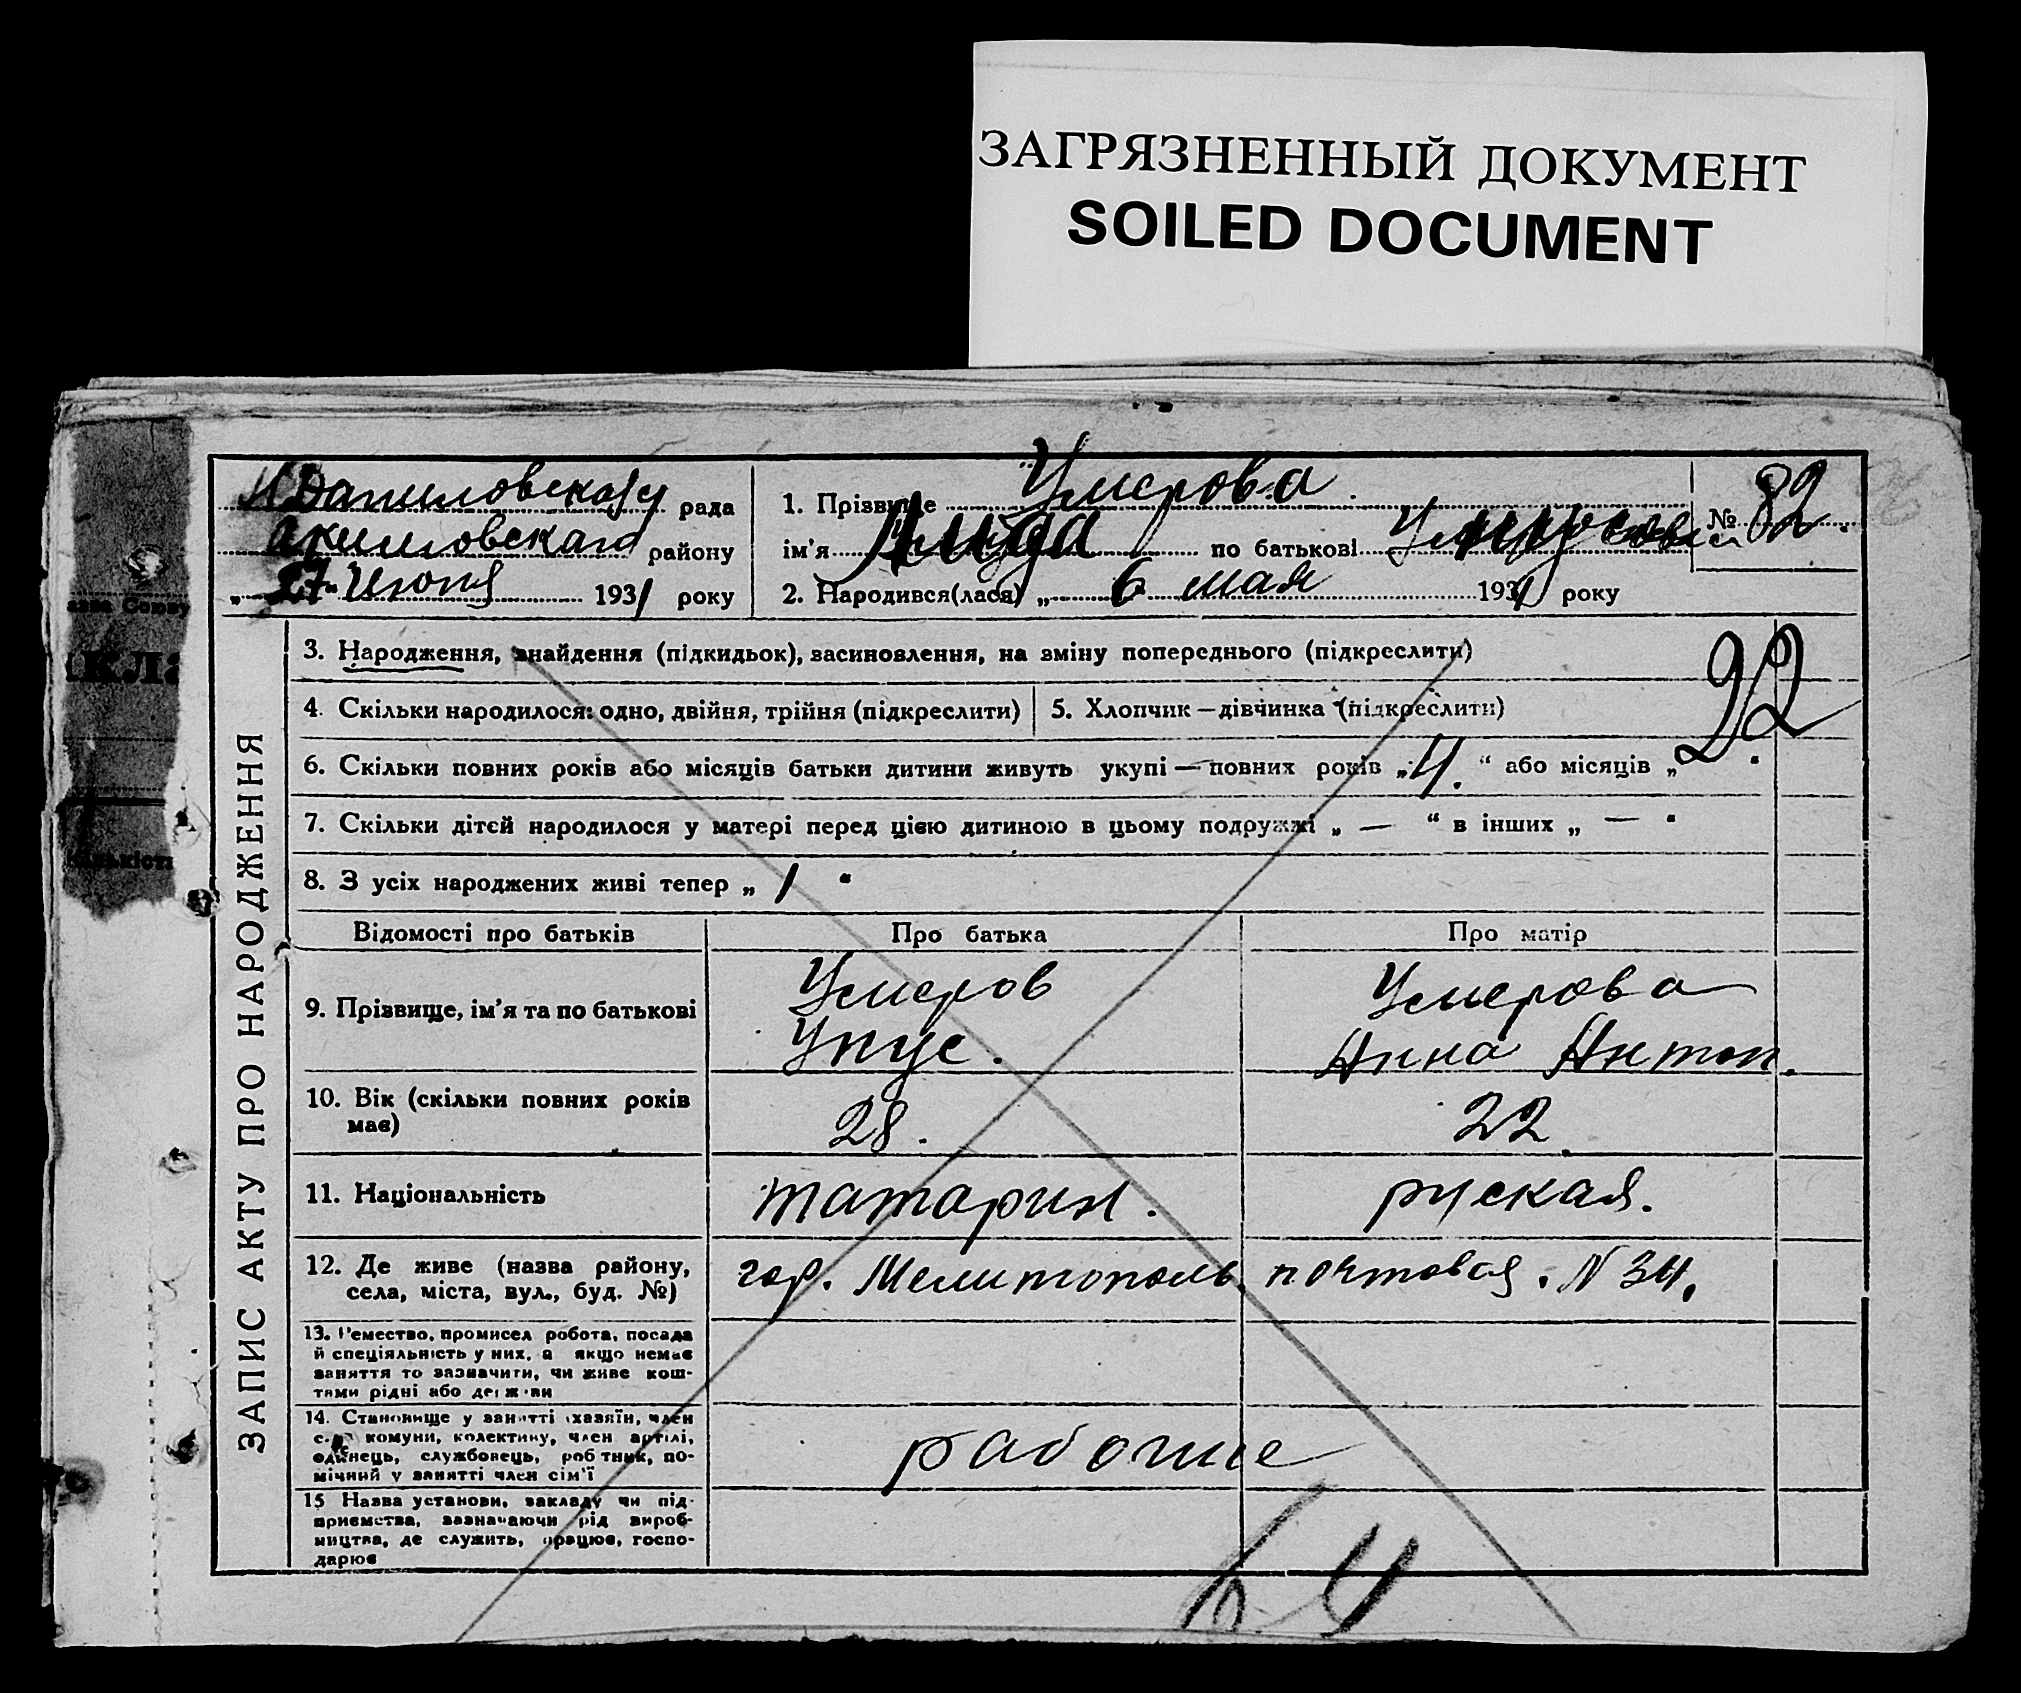 ЗАГРЯЗНЕННЫЙ ДОКУМЕНТ
SOILED DOCUMENT
рада
Акимовскаго району
„ 27 " Июня 1931 року
1. Прізвище Умерова
ім'я Лида по батькові
№ 82.
2. Народився(лася) „ 6 мая 1931 року
ЗАПИС АКТУ ПРО НАРОДЖЕННЯ
3. Народження, знайдення (підкидьок), засиновлення, на зміну попереднього (підкреслити)
22
4. Скільки народилося: одно, двійня, трійня (підкреслити)
5. Хлопчик — дівчинка (підкреслити)
6. Скільки повних років або місяців батьки дитини живуть укупі — повних років „ 4. “ або місяців „ "
7. Скільки дітєй народилося у матері перед цією дитиною в цьому подружжі „ — “ в інших „ — "
8. З усіх народжених живі тепер „ 1 "
Відомості про батьків
Про батька
Про матір
9. Прізвище, ім'я та по батькові
Умеров
Умерова
Упус.
Анна Антон.
10. Вік (скільки повних років
має)
28.
22
11. Національність
татарин.
руская.
12. Де живе (назва району,
села, міста, вул., буд. №)
гор. Мелитополь, почтовая. N 34.
13. Ремество, промисел робота, посада
й спеціяльність у них, а якщо немає
заняття то зазначити, чи живе кош-
тами рідні або держави
14. Становище у занятті (хазяїн, член
комуни, колективу, член артілі,
одинець, службовець, робітник, по-
мічний у занятті член сім'ї
рабочие
15 Назва установи, закладу чи під-
приємства, зазначаючи рід вироб-
ництва, де служить, працює, госпо-
дарює